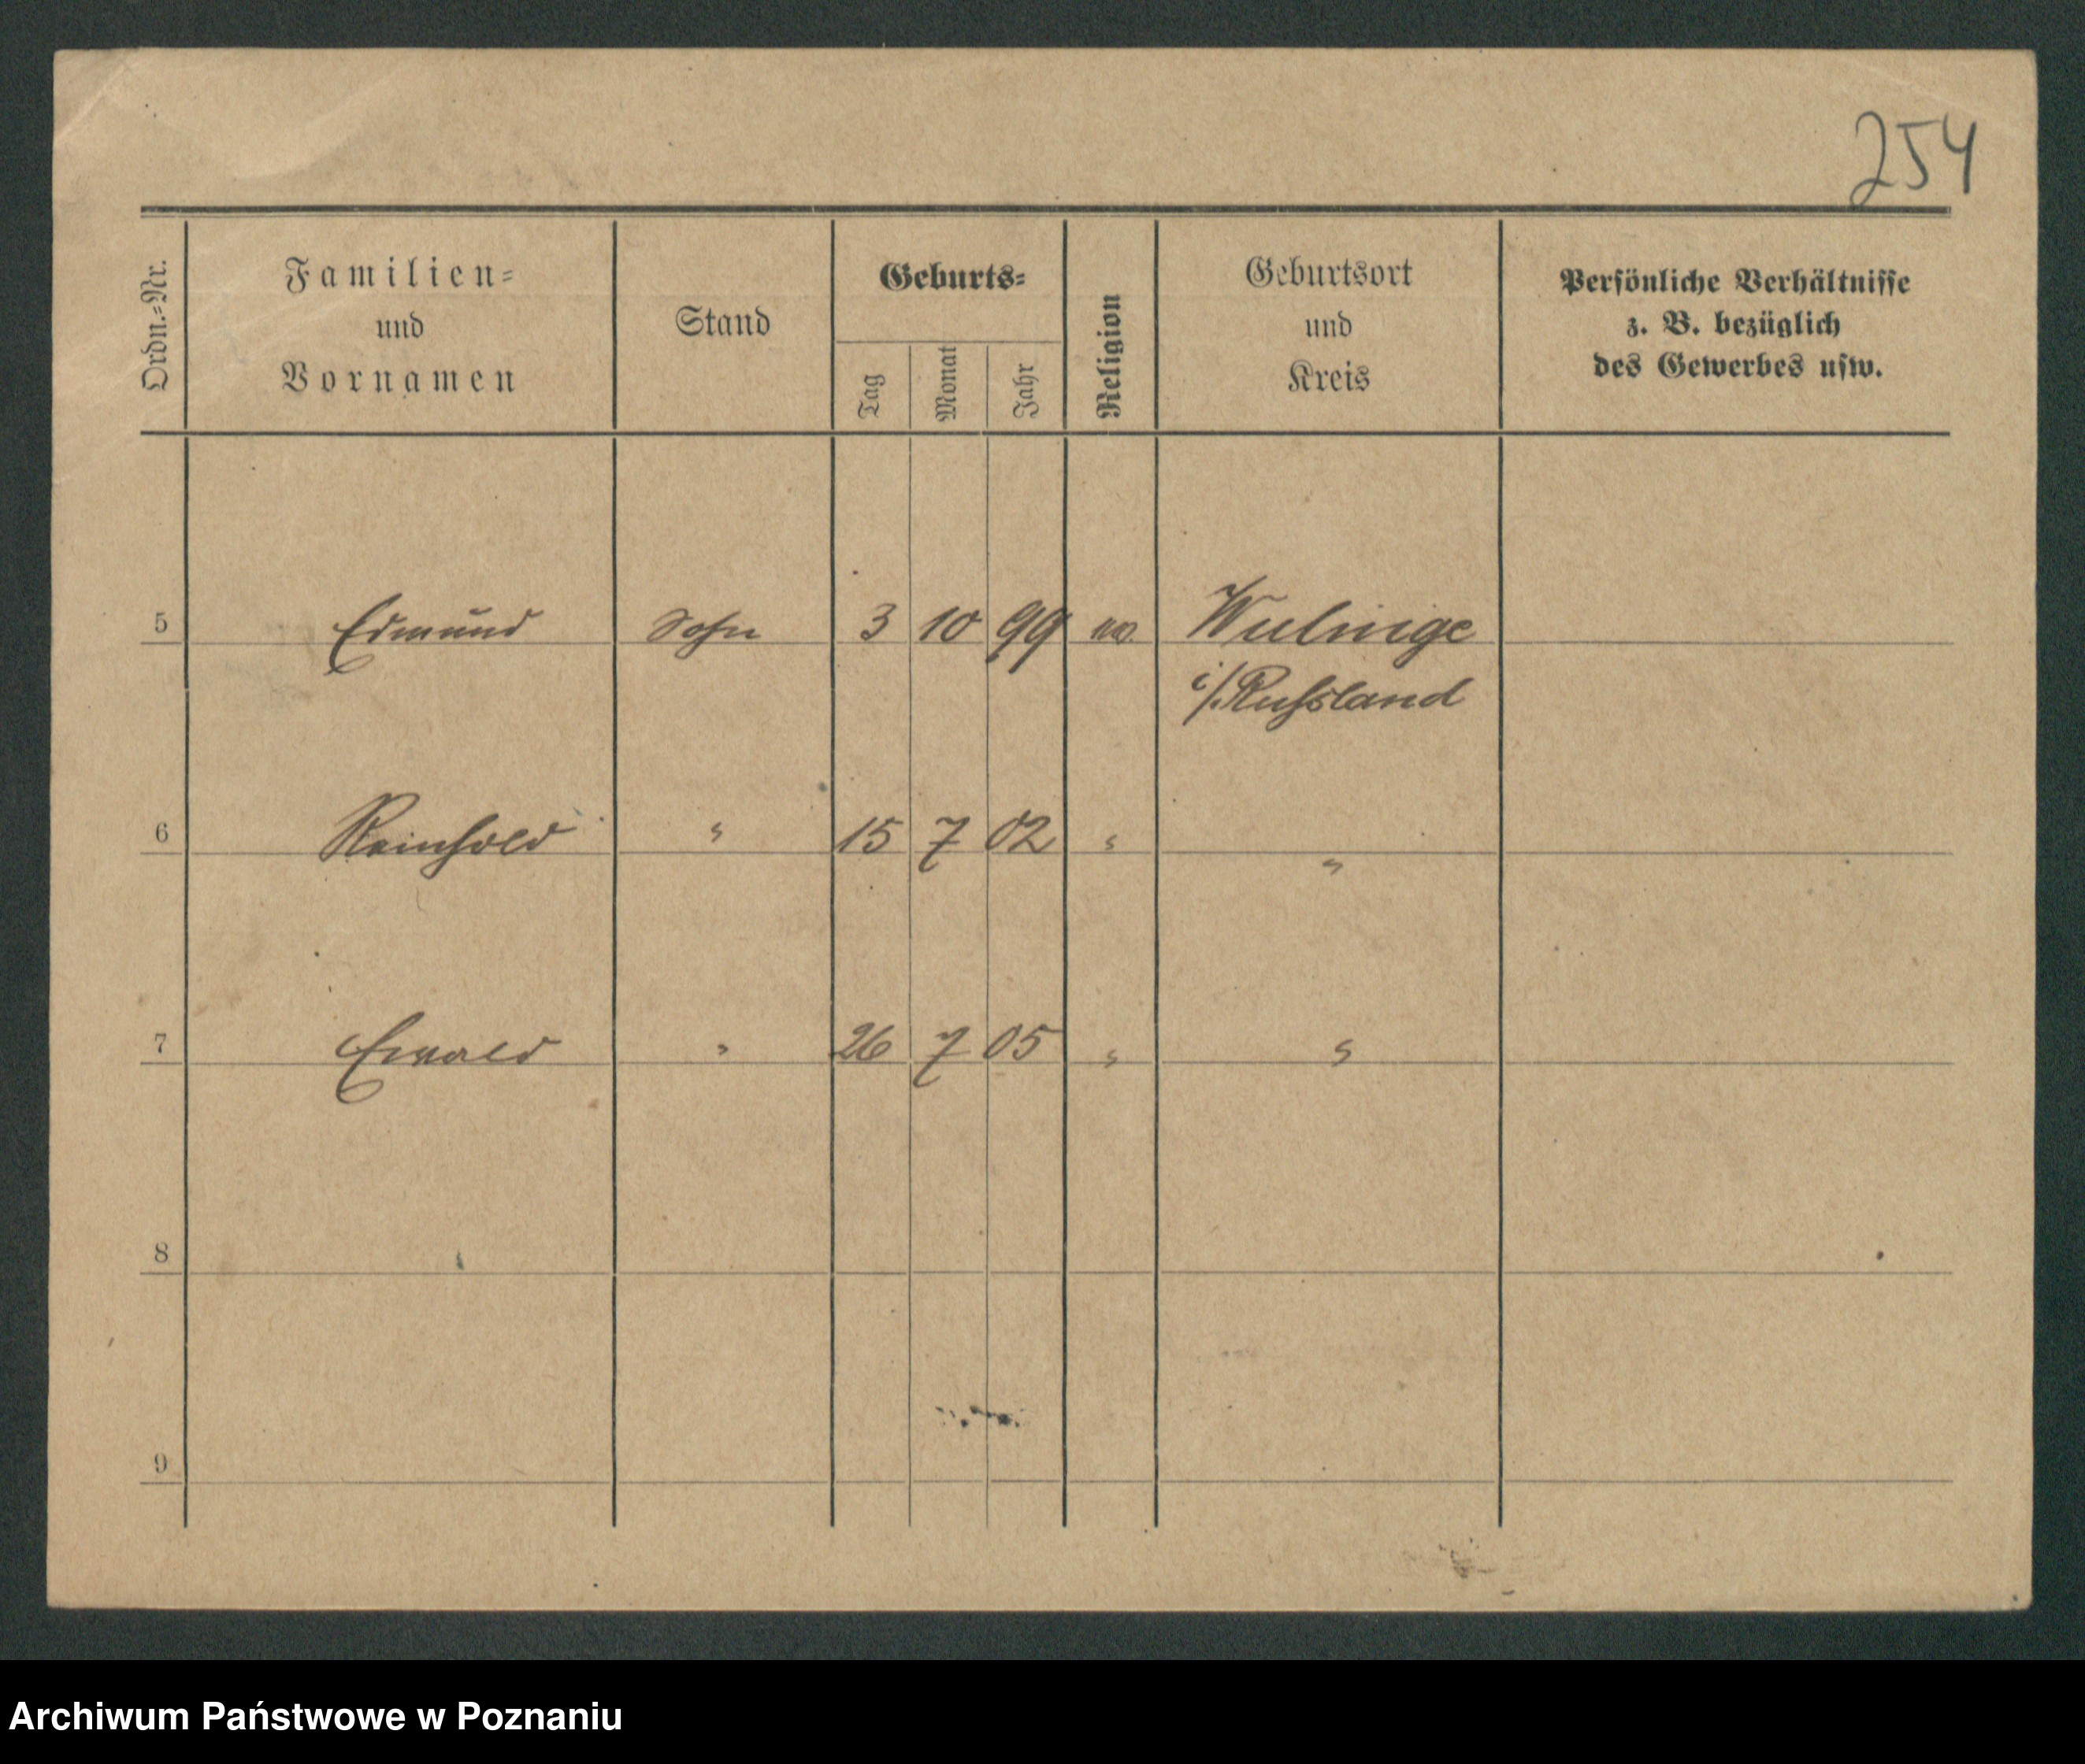 254
Ordn.-Nr.
Familien-
und
Vornamen
Stand
Geburts-
Tag
Monat
Jahr
Religion
Geburtsort
und
Kreis
Persönliche Verhältnisse
z. B. bezüglich
des Gewerbes usw.
5 Edmund Sohn 3 10 99
i/Russland
6 Reinhold " 15 7 02 " "
7 Ewald " 26 7 05 " "
8
9
Archiwum Państwowe w Poznaniu